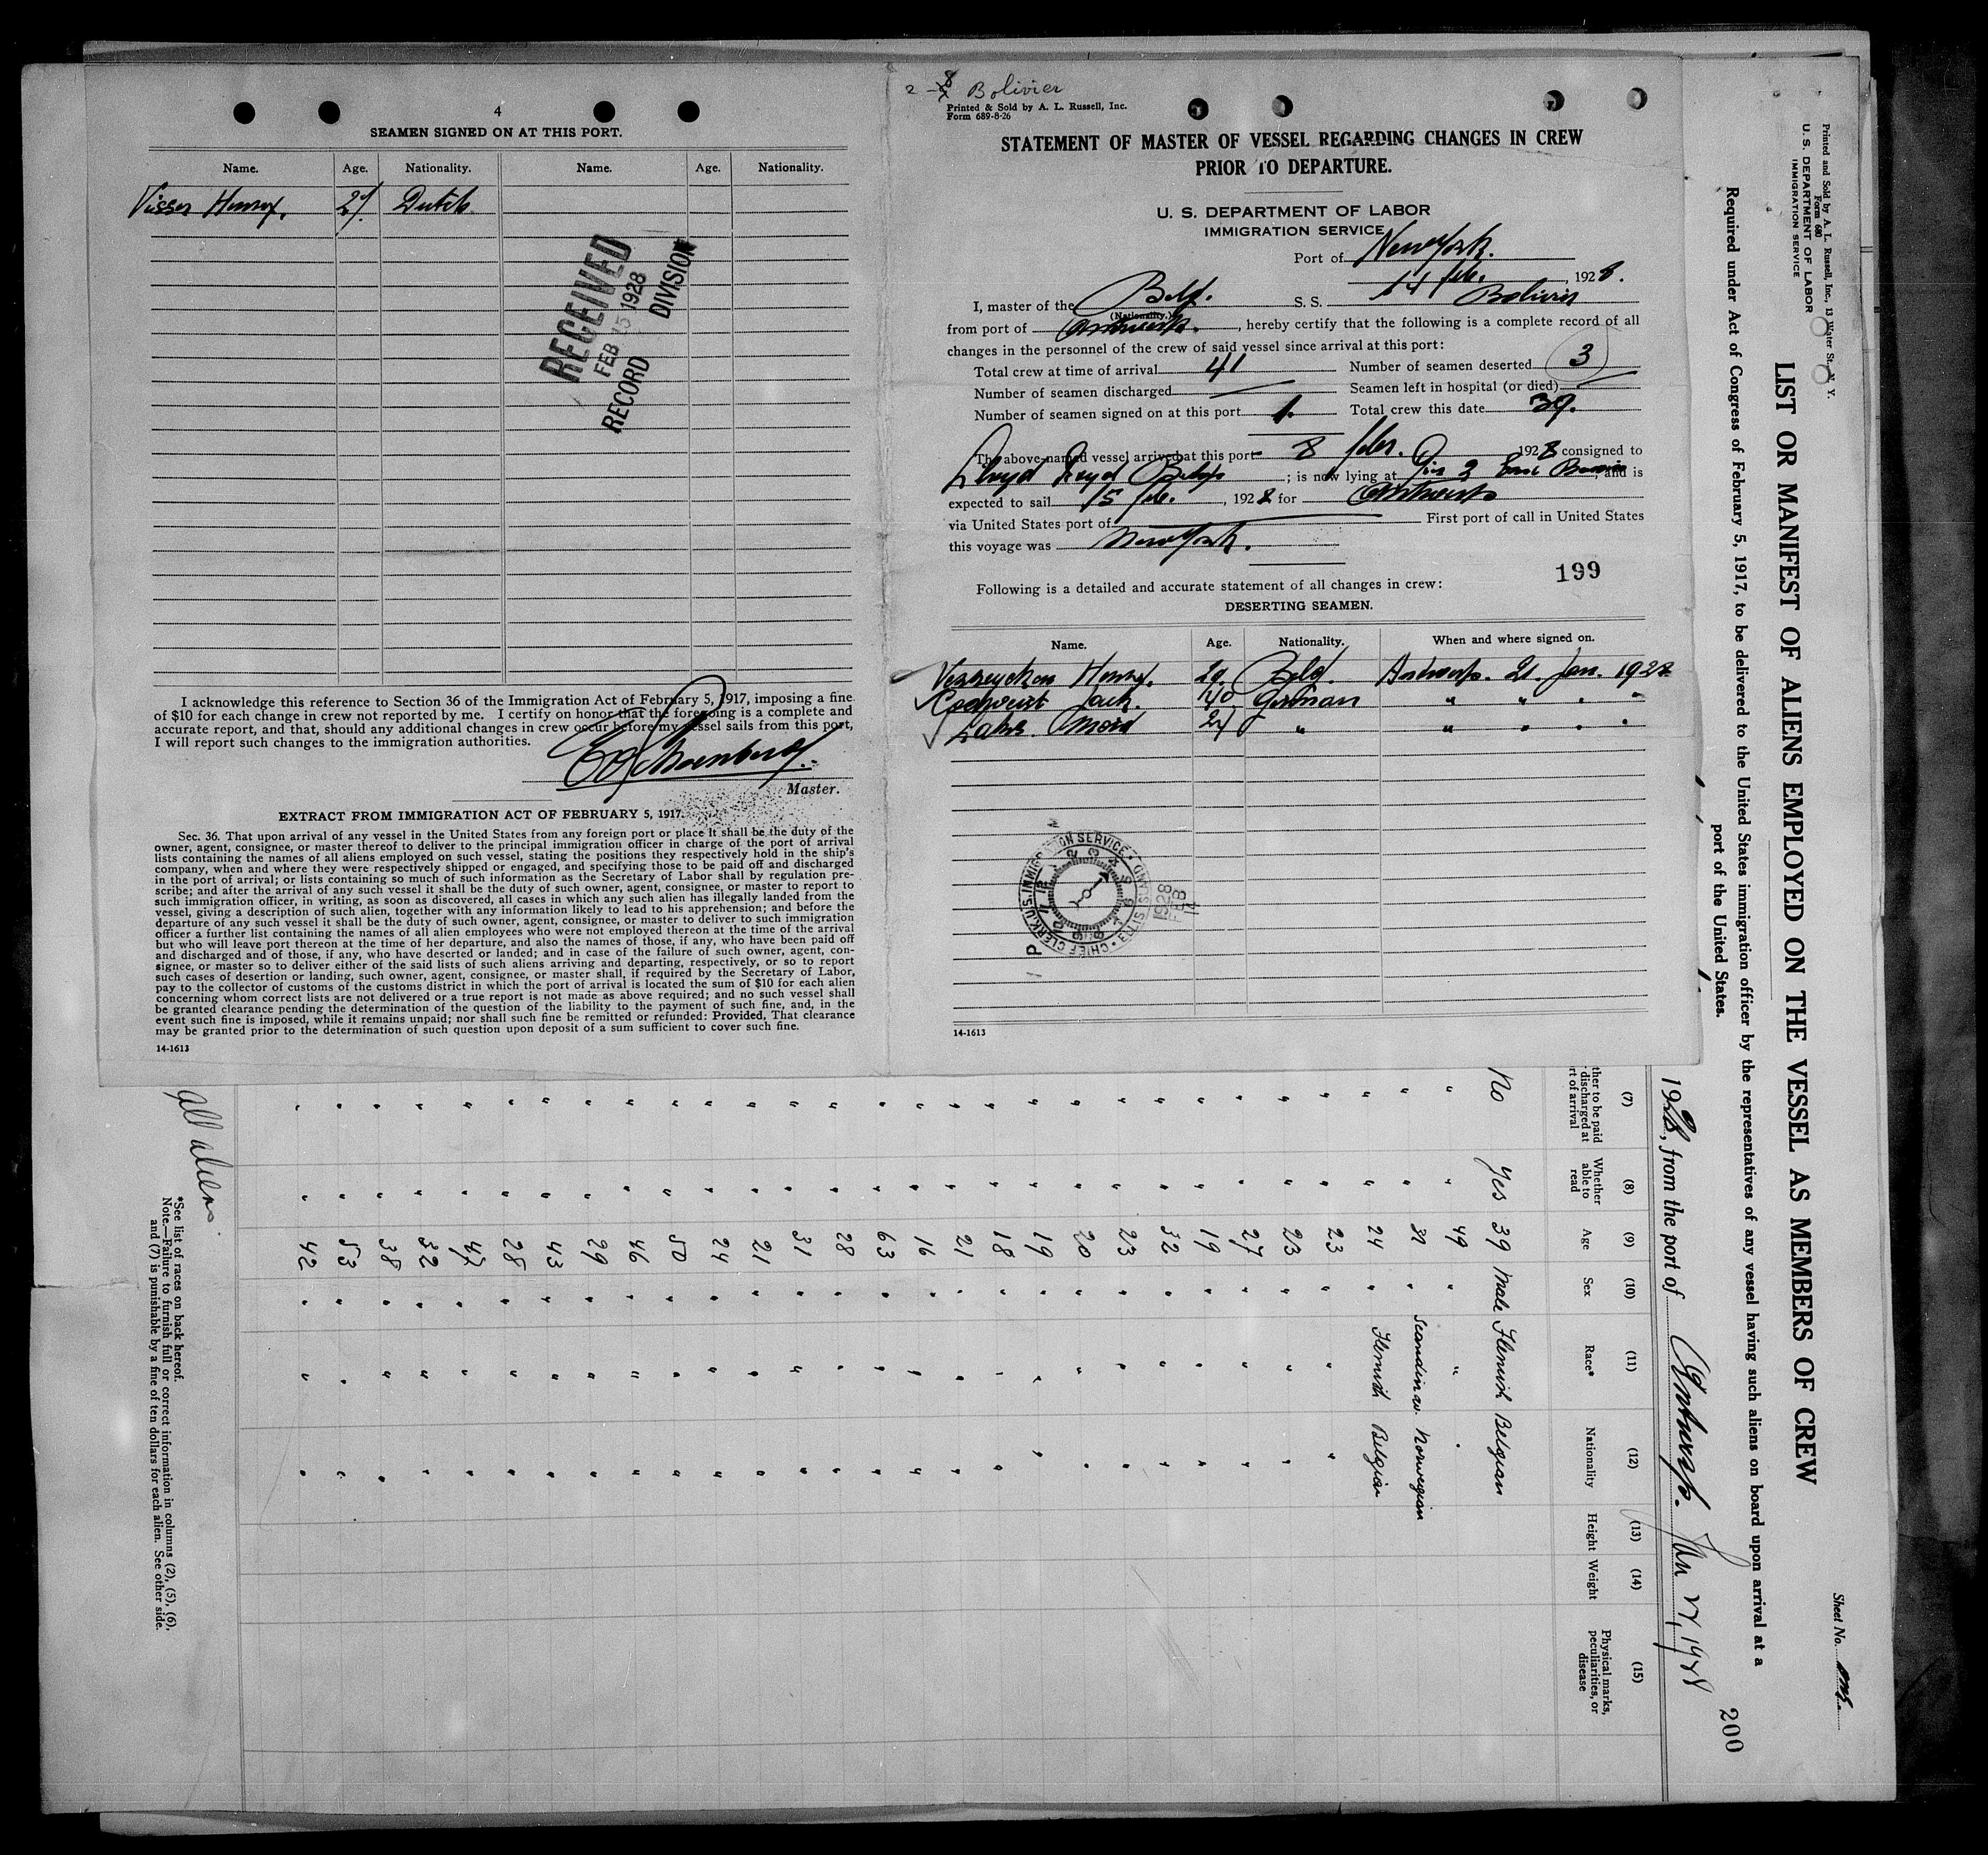 4
SEAMEN SIGNED ON AT THIS PORT.
Name. Age. Nationality. Name. Age. Nationality.
Visser Henry. Dutch
RECEIVED
FEB 15 1928
RECORD DIVISION
I acknowledge this reference to Section 36 of the Immigration Act of February 5, 1917, imposing a fine
of $10 for each change in crew not reported by me. I certify on honor that the foregoing is a complete and
accurate report, and that, should any additional changes in crew occur before my vessel sails from this port,
I will report such changes to the immigration authorities.
Master.
EXTRACT FROM IMMIGRATION ACT OF FEBRUARY 5, 1917.
Sec. 36. That upon arrival of any vessel in the United States from any foreign port or place it shall be the duty of the
owner, agent, consignee, or master thereof to deliver to the principal immigration officer in charge of the port of arrival
lists containing the names of all aliens employed on such vessel, stating the positions they respectively hold in the ship's
company, when and where they were respectively shipped or engaged, and specifying those to be paid off and discharged
in the port of arrival; or lists containing so much of such information as the Secretary of Labor shall by regulation pre-
scribe; and after the arrival of any such vessel it shall be the duty of such owner, agent, consignee, or master to report to
such immigration officer, in writing, as soon as discovered, all cases in which any such alien has illegally landed from the
vessel, giving a description of such alien, together with any information likely to lead to his apprehension; and before the
departure of any such vessel it shall be the duty of such owner, agent, consignee, or master to deliver to such immigration
officer a further list containing the names of all alien employees who were not employed thereon at the time of the arrival
but who will leave port thereon at the time of her departure, and also the names of those, if any, who have been paid off
and discharged and of those, if any, who have deserted or landed; and in case of the failure of such owner, agent, con-
signee, or master so to deliver either of the said lists of such aliens arriving and departing, respectively, or so to report
such cases of desertion or landing, such owner, agent, consignee, or master shall, if required by the Secretary of Labor,
pay to the collector of customs of the customs district in which the port of arrival is located the sum of $10 for each alien
concerning whom correct lists are not delivered or a true report is not made as above required; and no such vessel shall
be granted clearance pending the determination of the question of the liability to the payment of such fine, and, in the
event such fine is imposed, while it remains unpaid; nor shall such fine be remitted or refunded: Provided, That clearance
may be granted prior to the determination of such question upon deposit of a sum sufficient to cover such fine.
14-1613
2-8 Bolivier
Printed & Sold by A. L. Russell, Inc.
Form 689-8-26
STATEMENT OF MASTER OF VESSEL REGARDING CHANGES IN CREW
PRIOR TO DEPARTURE.
U. S. DEPARTMENT OF LABOR
IMMIGRATION SERVICE
Port of New York.
14 feb. , 1928.
I, master of the Belg. S. S. Bolivier
(Nationality.)
from port of Antwerp. , hereby certify that the following is a complete record of all
changes in the personnel of the crew of said vessel since arrival at this port:
Total crew at time of arrival 41 Number of seamen deserted 3
Number of seamen discharged — Seamen left in hospital (or died) —
Number of seamen signed on at this port 1. Total crew this date 39.
The above-named vessel arrived at this port 8 febr. , 1928 consigned to
Lloyd Royal Belge ; is now lying at Pier 2 , and is
expected to sail 15 feb. , 1928 for Antwerp
via United States port of — First port of call in United States
this voyage was New York.
199
Following is a detailed and accurate statement of all changes in crew:
DESERTING SEAMEN.
Name. Age. Nationality. When and where signed on.
Henry. 29. Belg. Antwerp. 21. Jan. 1928
40 German " " " "
24 " " " " "
CHIEF CLERK U.S. IMMIGRATION SERVICE · ELLIS ISLAND
1928 FEB 14 P
14-1613
Printed and Sold by A. L. Russell, Inc., 13 Water St., N. Y.
Form 680
U. S. DEPARTMENT OF LABOR
IMMIGRATION SERVICE
Sheet No. one.
LIST OR MANIFEST OF ALIENS EMPLOYED ON THE VESSEL AS MEMBERS OF CREW
Required under Act of Congress of February 5, 1917, to be delivered to the United States immigration officer by the representatives of any vessel having such aliens on board upon arrival at a
port of the United States.
200
1928, from the port of Antwerp. Jan 21, 1928
(7) (8) (9) (10) (11) (12) (13) (14) (15)
ther to be paid discharged at rt of arrival Whether able to read Age Sex Race* Nationality Height Weight Physical marks, peculiarities, or disease
No Yes 39 Male Flemish Belgian
" " 49 " " "
" " 32 " Scandinav. Norwegian
" " 24 " Flemish Belgian
" " 23 " " "
" " 23 " " "
" " 27 " " "
" " 19 " " "
" " 32 " " "
" " 23 " " "
" " 20 " " "
" " 19 " " "
" " 18 " " "
" " 21 " " "
" " 16 " " "
" " 63 " " "
" " 28 " " "
" " 31 " " "
" " 21 " " "
" " 24 " " "
" " 50 " " "
" " 46 " " "
" " 29 " " "
" " 43 " " "
" " 28 " " "
" " 42 " " "
" " 32 " " "
" " 38 " " "
" " 53 " " "
" " 42 " " "
all aliens
*See list of races on back hereof.
Note.—Failure to furnish full or correct information in columns (2), (5), (6),
and (7) is punishable by a fine of ten dollars for each alien. See other side.